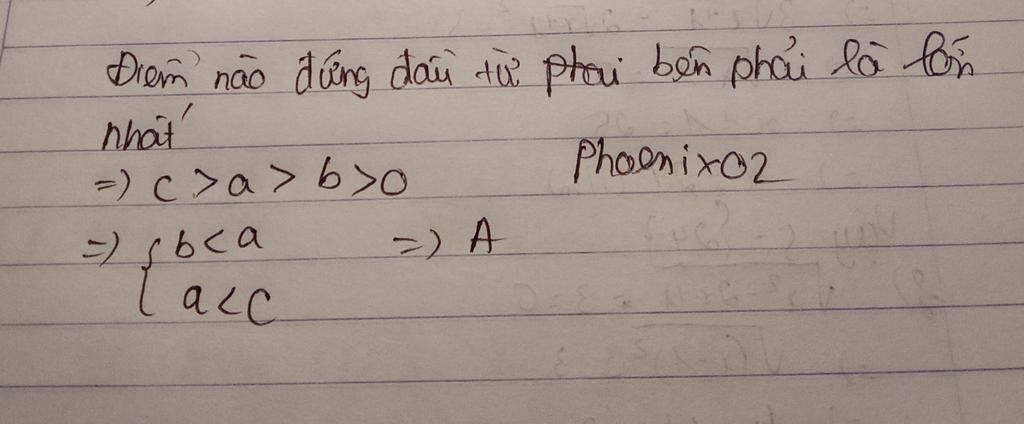 Điểm nào đứng đầu từ phai bên phải là lớn
nhất
=> c > a > b > 0 Phoenix02
=> { b < a => A
a < c